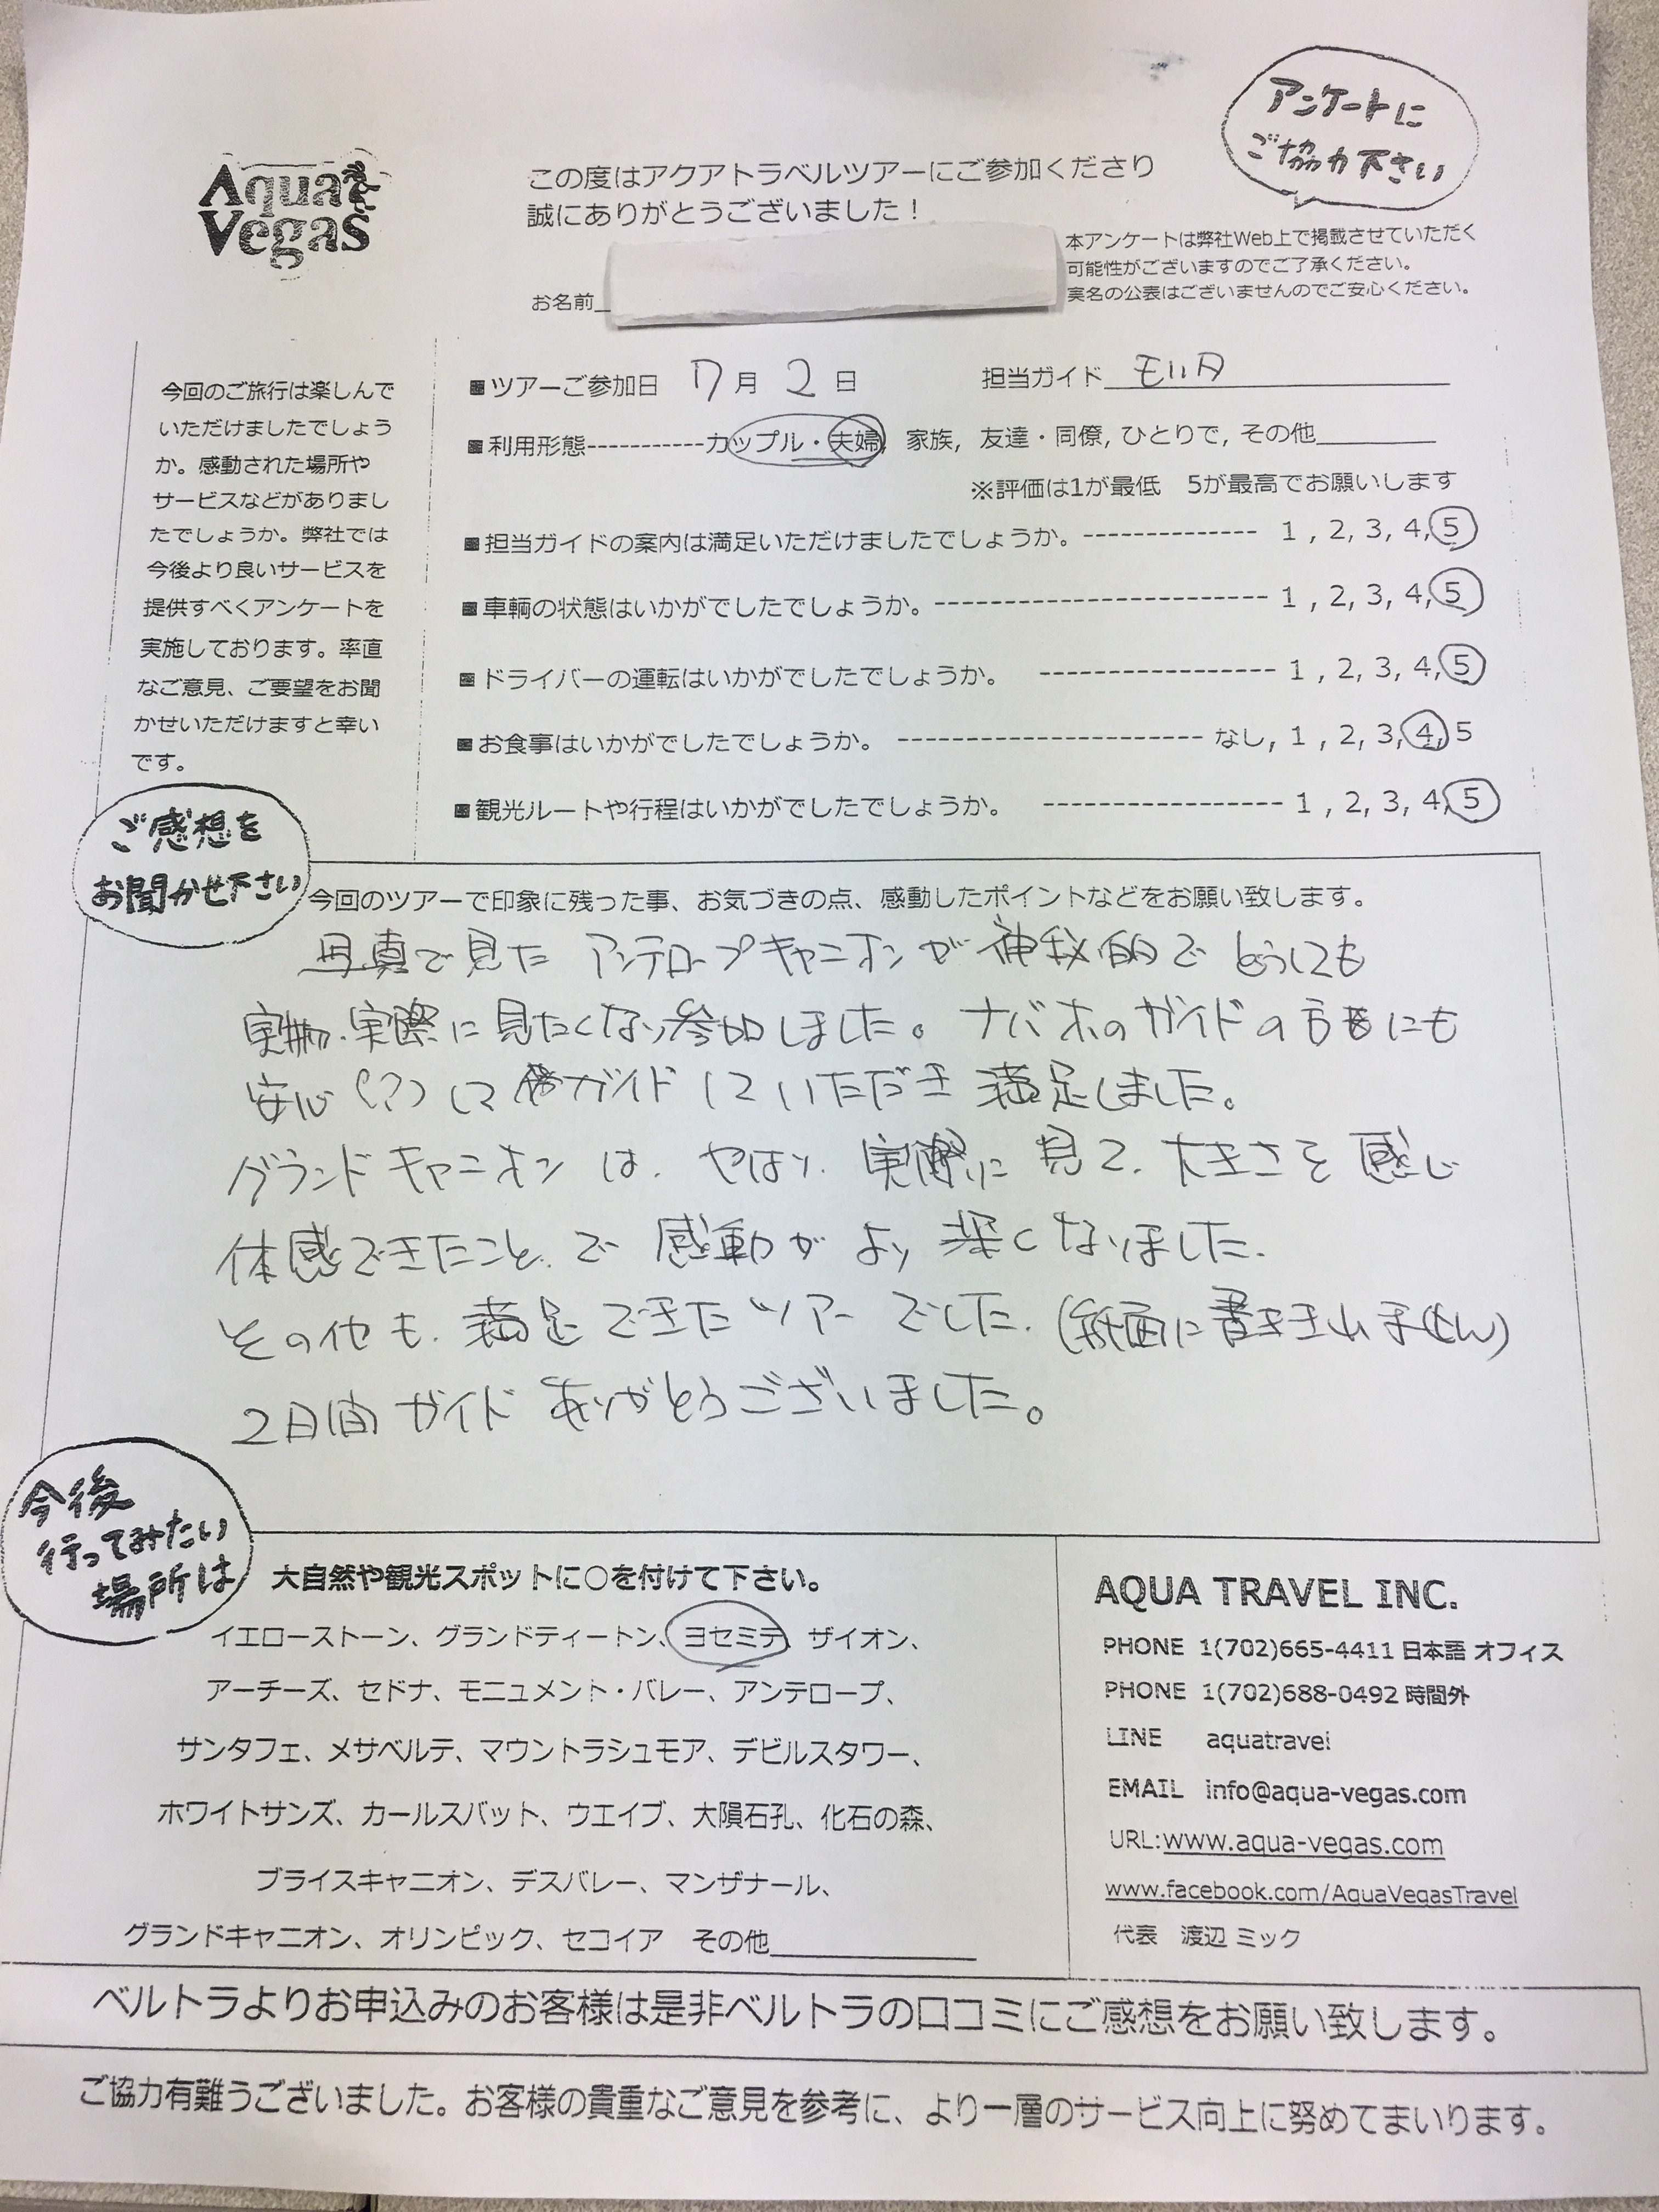 アンケートに
ご協力下さい
Aqua
Vegas
この度はアクアトラベルツアーにご参加くださり
誠にありがとうございました！
本アンケートは弊社Web上で掲載させていただく
可能性がございますのでご了承ください。
実名の公表はございませんのでご安心ください。
お名前
今回のご旅行は楽しんで
いただけましたでしょう
か。感動された場所や
サービスなどがありまし
たでしょうか。弊社では
今後より良いサービスを
提供すべくアンケートを
実施しております。率直
なご意見、ご要望をお聞
かせいただけますと幸い
です。
■ツアーご参加日 7月 2日 担当ガイド
■利用形態-----------カップル・夫婦, 家族, 友達・同僚, ひとりで, その他
※評価は1が最低 5が最高でお願いします
■担当ガイドの案内は満足いただけましたでしょうか。------------- 1 , 2, 3, 4, 5
■車輌の状態はいかがでしたでしょうか。------------------------- 1 , 2, 3, 4, 5
■ドライバーの運転はいかがでしたでしょうか。 ----------------- 1 , 2, 3, 4, 5
■お食事はいかがでしたでしょうか。 ----------------------- なし, 1 , 2, 3, 4, 5
■観光ルートや行程はいかがでしたでしょうか。 ------------------ 1 , 2, 3, 4, 5
ご感想を
お聞かせ下さい
今回のツアーで印象に残った事、お気づきの点、感動したポイントなどをお願い致します。
写真で見た アンテロープキャニオンが神秘的で どうしても
実際に見たくなり参加しました。ナバホのガイドの方にも
安心(?)して ガイドしていただき 満足しました。
グランドキャニオンは、やはり、実際に見て、大きさを感じ
体感できたこと、で 感動が より 深くなりました.
その他も、満足できたツアーでした.(紙面に書ききれません)
2日間 ガイド ありがとうございました。
今後
行ってみたい
場所は
大自然や観光スポットに○を付けて下さい。
イエローストーン、グランドティートン、ヨセミテ、ザイオン、
アーチーズ、セドナ、モニュメント・バレー、アンテロープ、
サンタフェ、メサベルテ、マウントラシュモア、デビルスタワー、
ホワイトサンズ、カールスバット、ウエイブ、大隕石孔、化石の森、
ブライスキャニオン、デスバレー、マンザナール、
グランドキャニオン、オリンピック、セコイア その他
AQUA TRAVEL INC.
PHONE 1(702)665-4411 日本語 オフィス
PHONE 1(702)688-0492 時間外
LINE aquatravel
EMAIL info@aqua-vegas.com
URL:www.aqua-vegas.com
www.facebook.com/AquaVegasTravel
代表 渡辺 ミック
ベルトラよりお申込みのお客様は是非ベルトラの口コミにご感想をお願い致します。
ご協力有難うございました。お客様の貴重なご意見を参考に、より一層のサービス向上に努めてまいります。